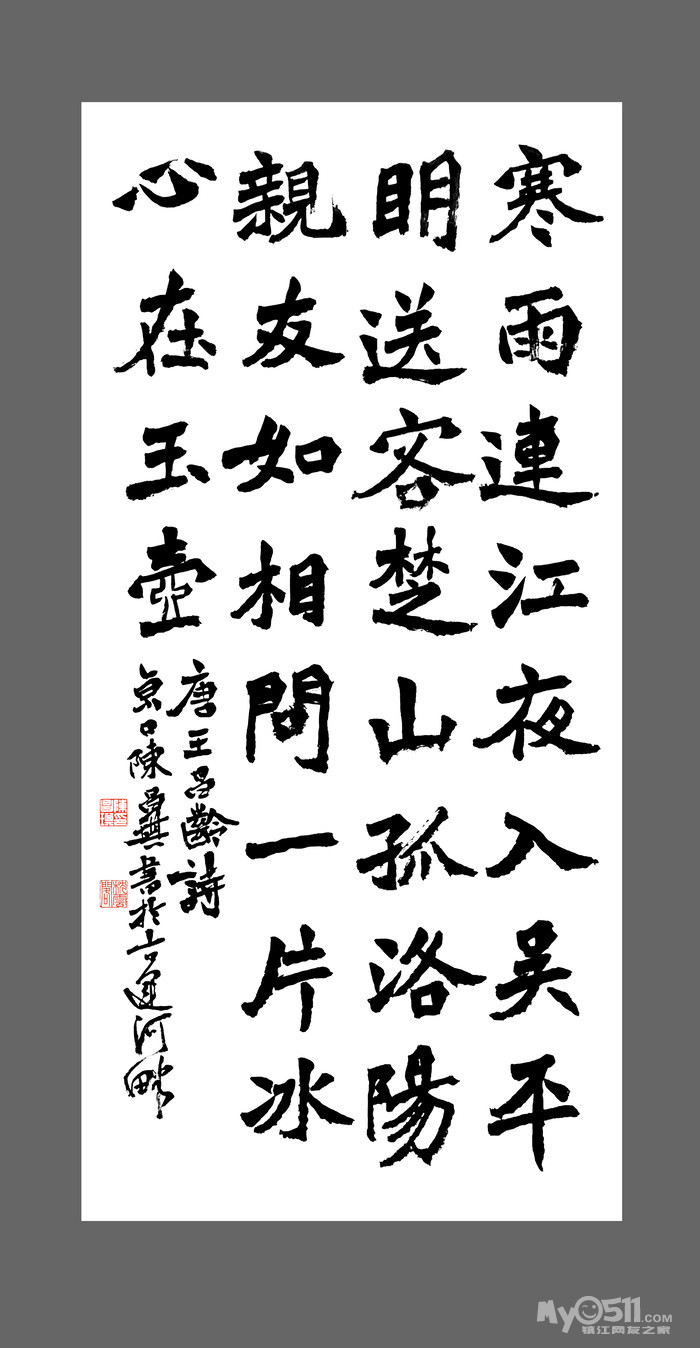 寒雨連江夜入吴平
明送客楚山孤洛陽
親友如相問一片冰
心在玉壺
唐王昌齡詩
京口陳昌書於古運河畔
My0511.com
镇江网友之家